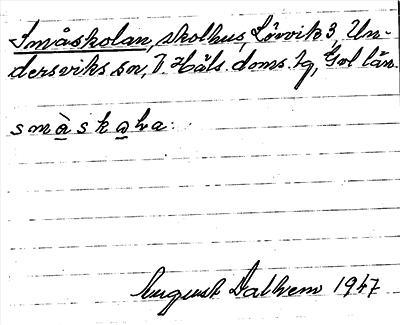 Småskolan, skolhus, Lörvik 3, Un-
dersviks sn, V. Häls. doms. tg, Gvl län.
s m à s k o l a :
August Dalhem 1947